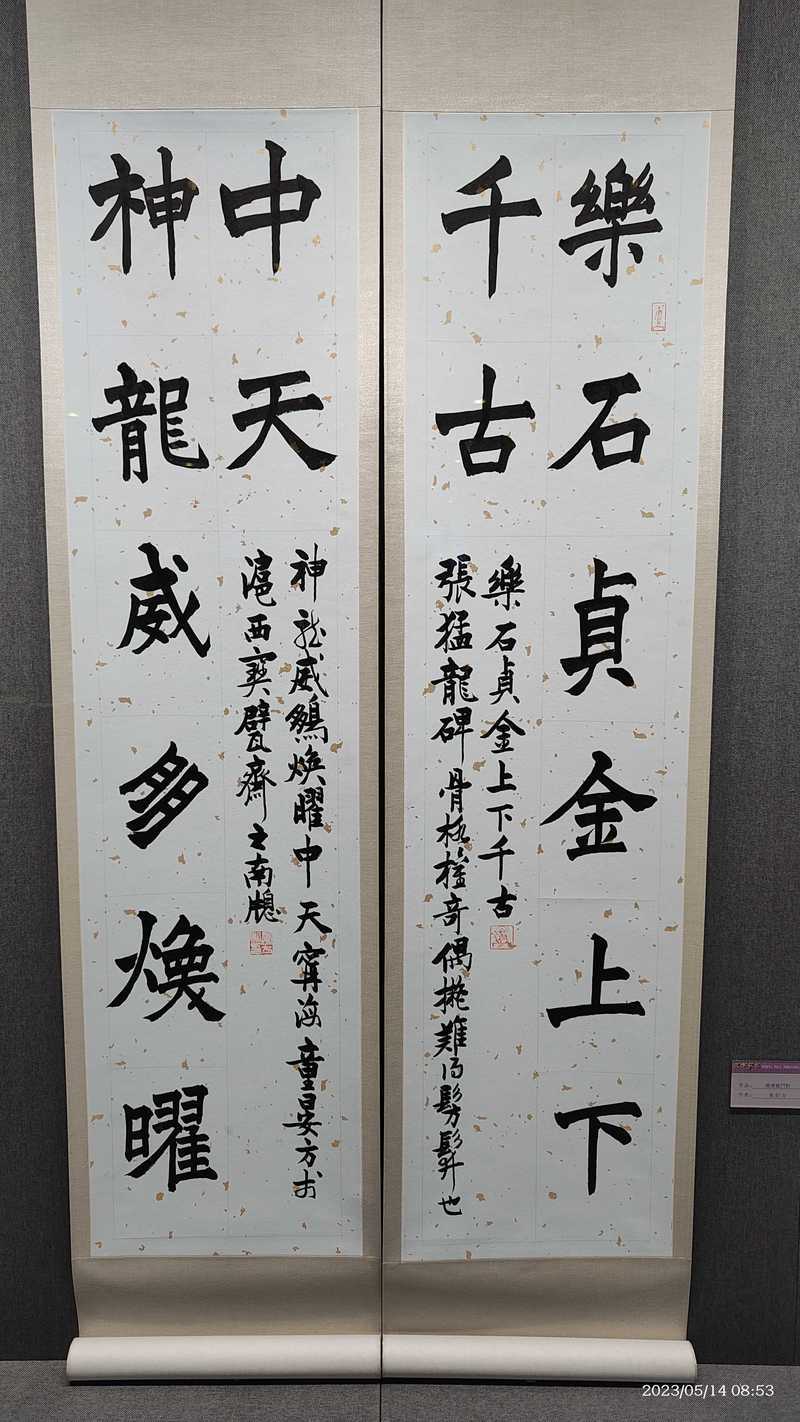 樂石貞金上下
千古
樂石貞金上下千古
張猛龍碑骨格權奇偶擬難得髣髴也
神龍威多煥曜
中天
神龙威煥曜中天寧海童晏方书
滬西寶甓齋之南牕
2023/05/14 08:53